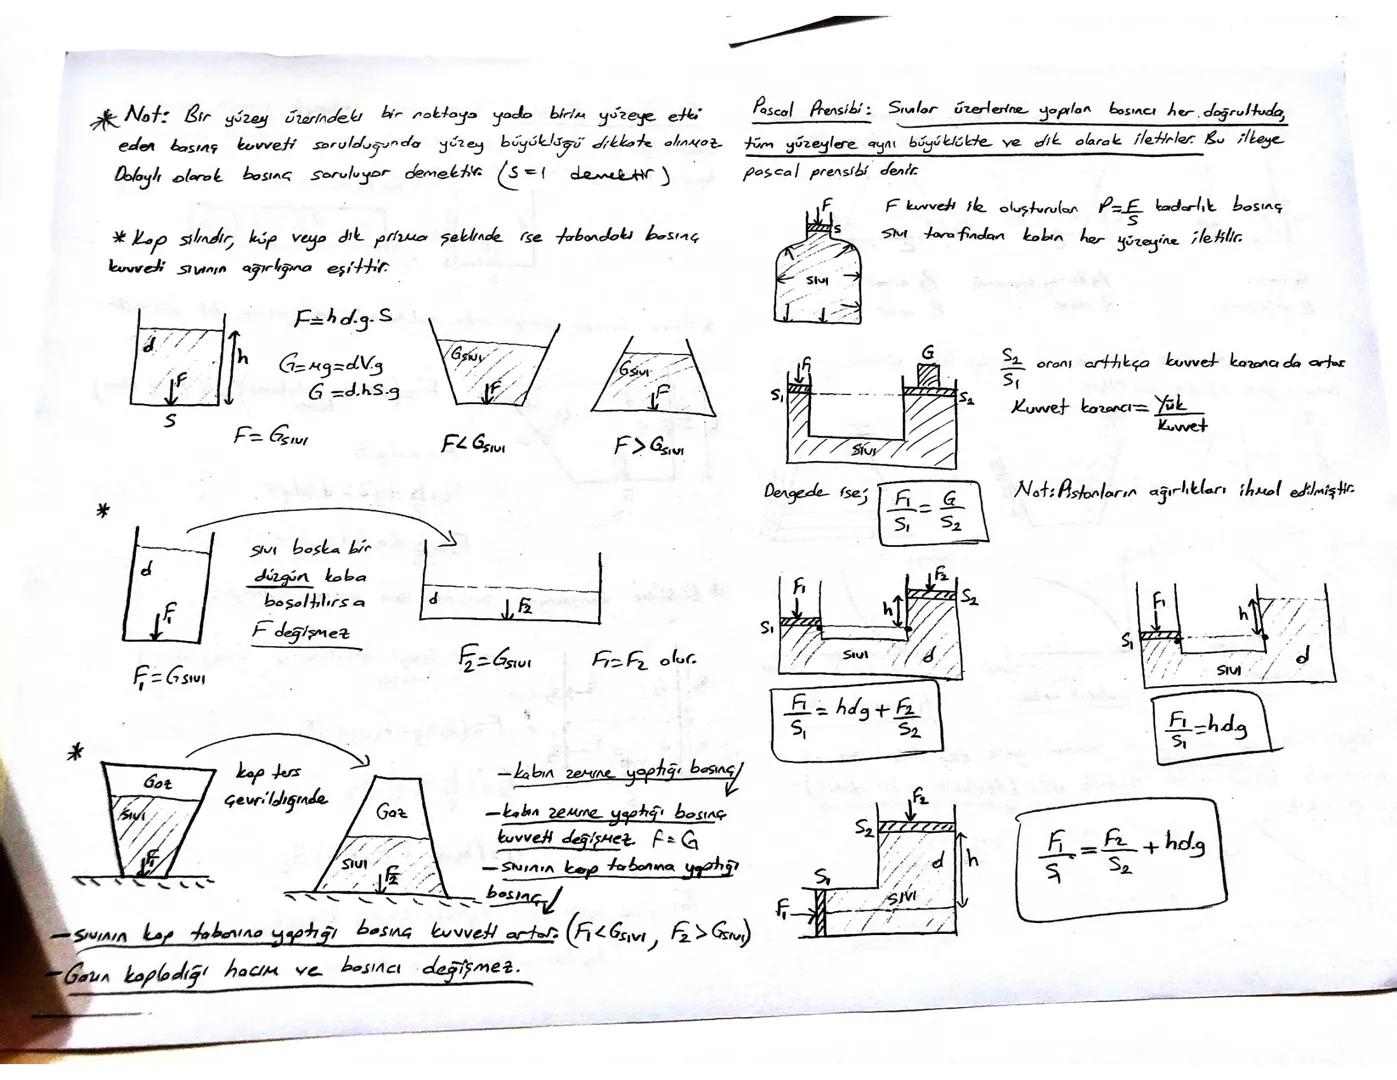 * Not: Bir yüzey üzerindeki bir noktaya yada birim yüzeye etki
eden basınç kuvveti sorulduğunda yüzey büyüklüğü dikkate alınmaz
Dolaylı olarak basınç soruluyor demektir. (S=1 demektir)
* Kap silindir, küp veya dik prizma şeklinde ise tabandaki basınç
kuvveti sıvının ağırlığına eşittir.
d
h
F
S
F=h.d.g.S
G=mg=dV.g
G=d.hS.g
F=Gsıvı
Gsıvı
F
F<Gsıvı
Gsıvı
F
F>Gsıvı
*
d
F₁
F₁=Gsıvı
sıvı başka bir
düzgün kaba
boşaltılırsa
F değişmez
d
F₂
F₂=Gsıvı F₁=F₂ olur.
*
Gaz
Sıvı
F₁
kap ters
çevrildiğinde
Gaz
Sıvı
F₂
-kabın zemine yaptığı basınç↓
-kabın zemine yaptığı basınç
kuvveti değişmez F=G
-Sıvının kap tabanına yaptığı
basınç↓
-Sıvının kap tabanına yaptığı basınç kuvveti artar. (F₁<Gsıvı, F₂>Gsıvı)
-Gazın kapladığı hacim ve basıncı değişmez.
Pascal Prensibi: Sıvılar üzerlerine yapılan basıncı her doğrultuda,
tüm yüzeylere aynı büyüklükte ve dik olarak iletirler. Bu ilkeye
pascal prensibi denir.
F
S
SIVI
F kuvveti ile oluşturulan P=F/S kadarlık basınç
sıvı tarafından kabın her yüzeyine iletilir.
F₁
S₁
G
S₂
SIVI
S₂/S₁ oranı arttıkça kuvvet kazancı da artar
Kuvvet kazancı=Yük/Kuvvet
Dengede ise; F₁/S₁=G/S₂
Not: Pistonların ağırlıkları ihmal edilmiştir.
F₁
S₁
h
F₂
S₂
SIVI
d
F₁/S₁=hdg+F₂/S₂
F₁
S₁
h
SIVI
d
F₁/S₁=h.d.g
F₂
S₂
d
h
S₁
F₁
SIVI
F₁/S₁=F₂/S₂+hd.g